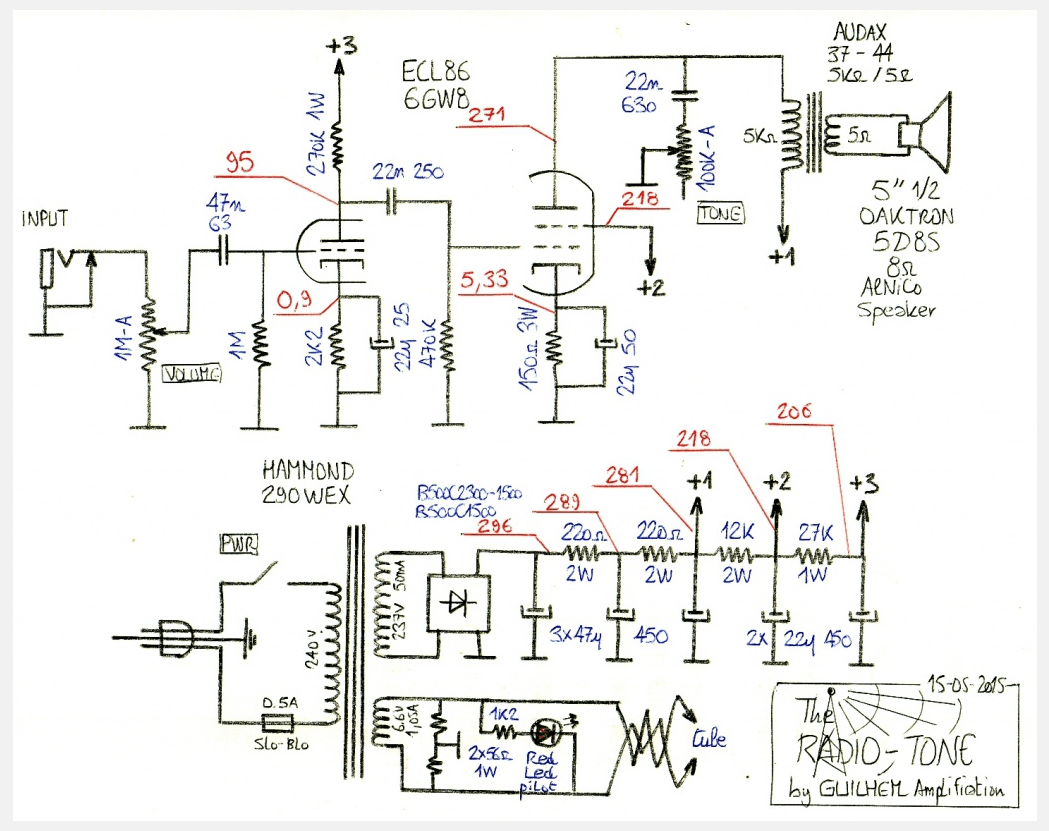 AUDAX
37-44
5kΩ/5Ω
+3
ECL86
6GW8
22n
630
270K 1W
271
5KΩ
5Ω
95
22n 250
100K-A
47n
63
218
TONE
5" 1/2
OAKTRON
5D8S
8Ω
AlNiCo
Speaker
INPUT
+1
+2
5,33
0,9
1M-A
1M
2K2
22µ 25
470K
150Ω 3W
22µ 50
VOLUME
206
218
HAMMOND
290WEX
281
+1
+2
+3
B500C2300-1500
B500C1500
289
296
220Ω
2W
220Ω
2W
12K
2W
27K
1W
PWR
237V 50mA
240V
3x47µ
450
2x
22µ 450
0.5A
Slo-Blo
6.6V
1,05A
1K2
2x56Ω
1W
Red
Led
pilot
tube
15-05-2015
The
RADIO-TONE
by GUILHEM Amplification